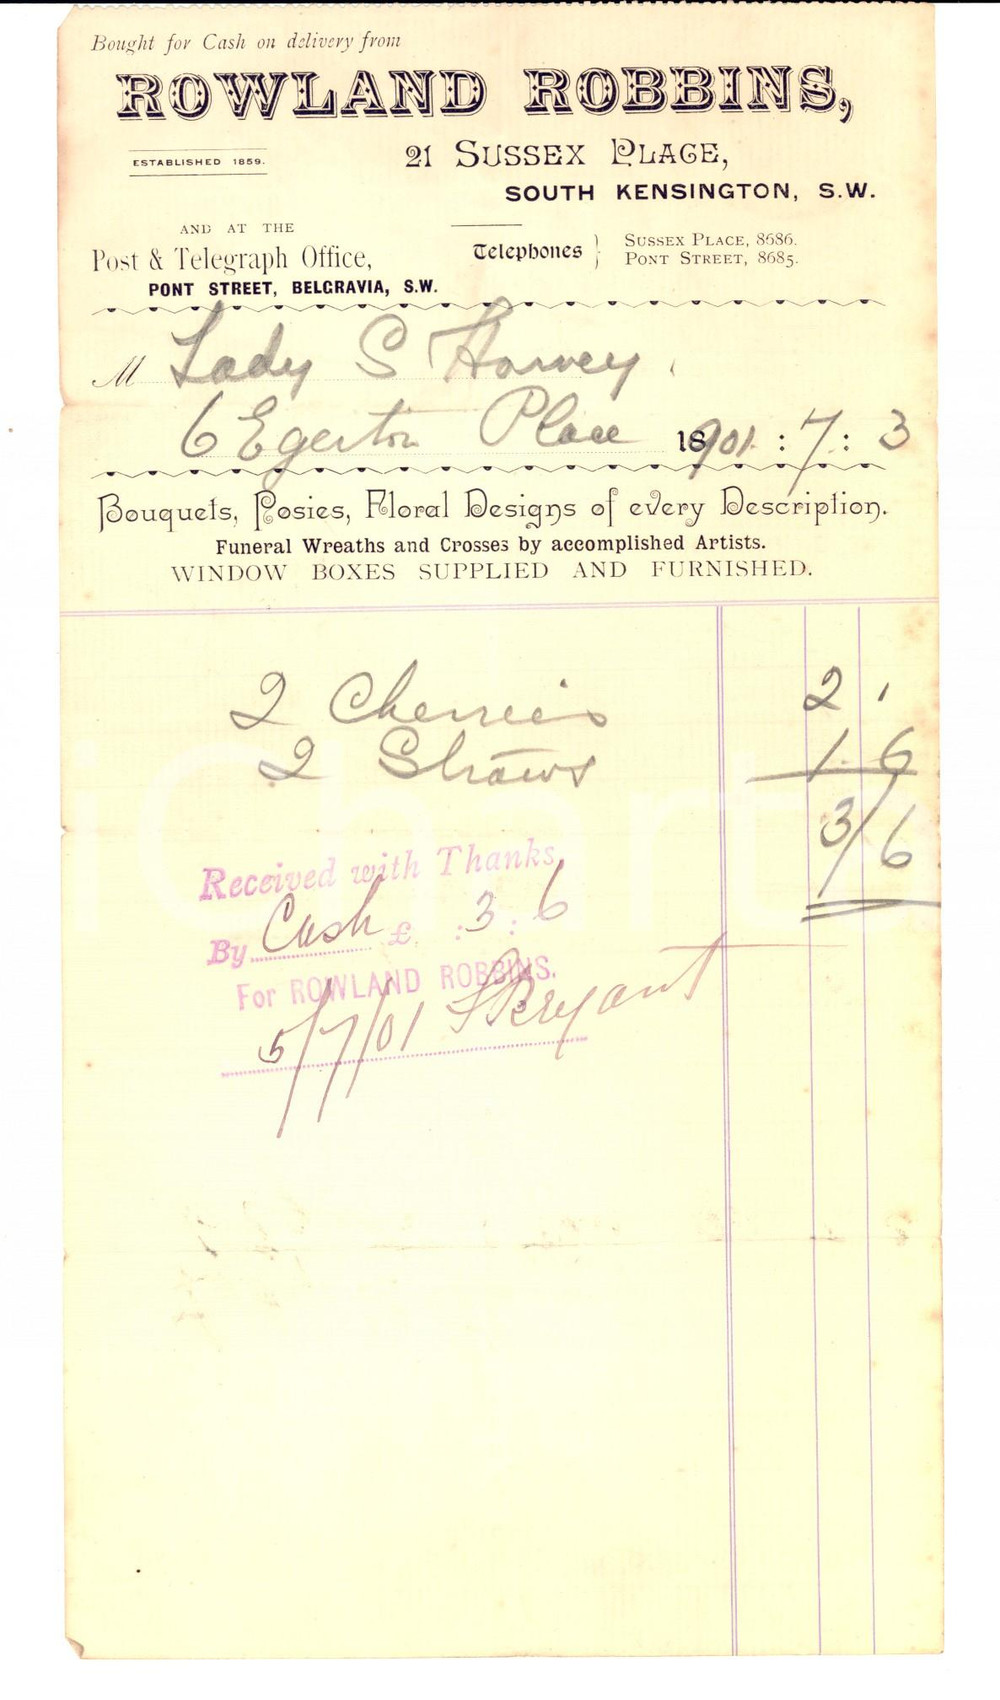 Bought for Cash on delivery from
ROWLAND ROBBINS,
ESTABLISHED 1859.
21 SUSSEX PLACE,
SOUTH KENSINGTON, S.W.
AND AT THE
Post & Telegraph Office,
PONT STREET, BELGRAVIA, S.W.
Telephones { SUSSEX PLACE, 8686.
PONT STREET, 8685.
M Lady S Harvey
6 Egerton Place 1901 : 7 : 3
Bouquets, Posies, Floral Designs of every Description.
Funeral Wreaths and Crosses by accomplished Artists.
WINDOW BOXES SUPPLIED AND FURNISHED.
2 Cherries 2 '
2 Straws 1 . 6
3/6
Received with Thanks
By Cash £ : 3 : 6
For ROWLAND ROBBINS.
5/7/01 Bryant